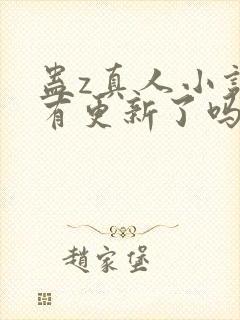 蛊z真人小说
有更新了吗
趙家堡